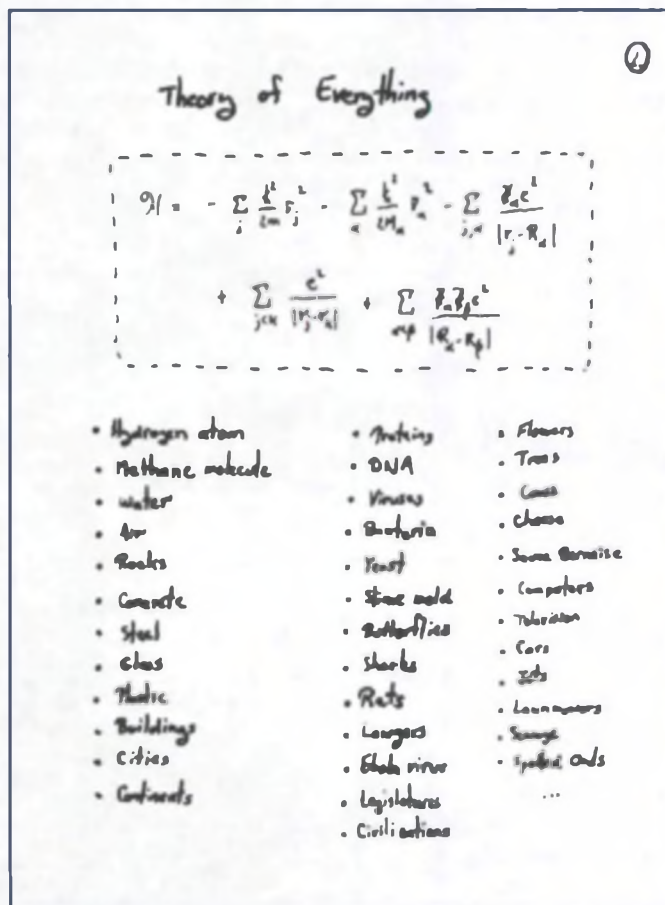 ①
Theory of Everything
ℋ = - ∑_j ℏ²/2m ∇_j² - ∑_α ℏ²/2M_α ∇_α² - ∑_{j,α} Z_α e²/|r_j - R_α|
+ ∑_{j<k} e²/|r_j - r_k| + ∑_{α<β} Z_α Z_β e²/|R_α - R_β|
• Hydrogen atom
• Methane molecule
• Water
• Air
• Rocks
• Concrete
• Steel
• Glass
• Plastic
• Buildings
• Cities
• Continents
• Proteins
• DNA
• Viruses
• Bacteria
• Yeast
• Slime mold
• Butterflies
• Sharks
• Rats
• Lawyers
• Ebola virus
• Legislatures
• Civilizations
• Flowers
• Trees
• Cows
• Cheese
• Sauce Bernaise
• Computers
• Television
• Cars
• Jets
• Lawnmowers
• Sewage
• Spotted Owls
...